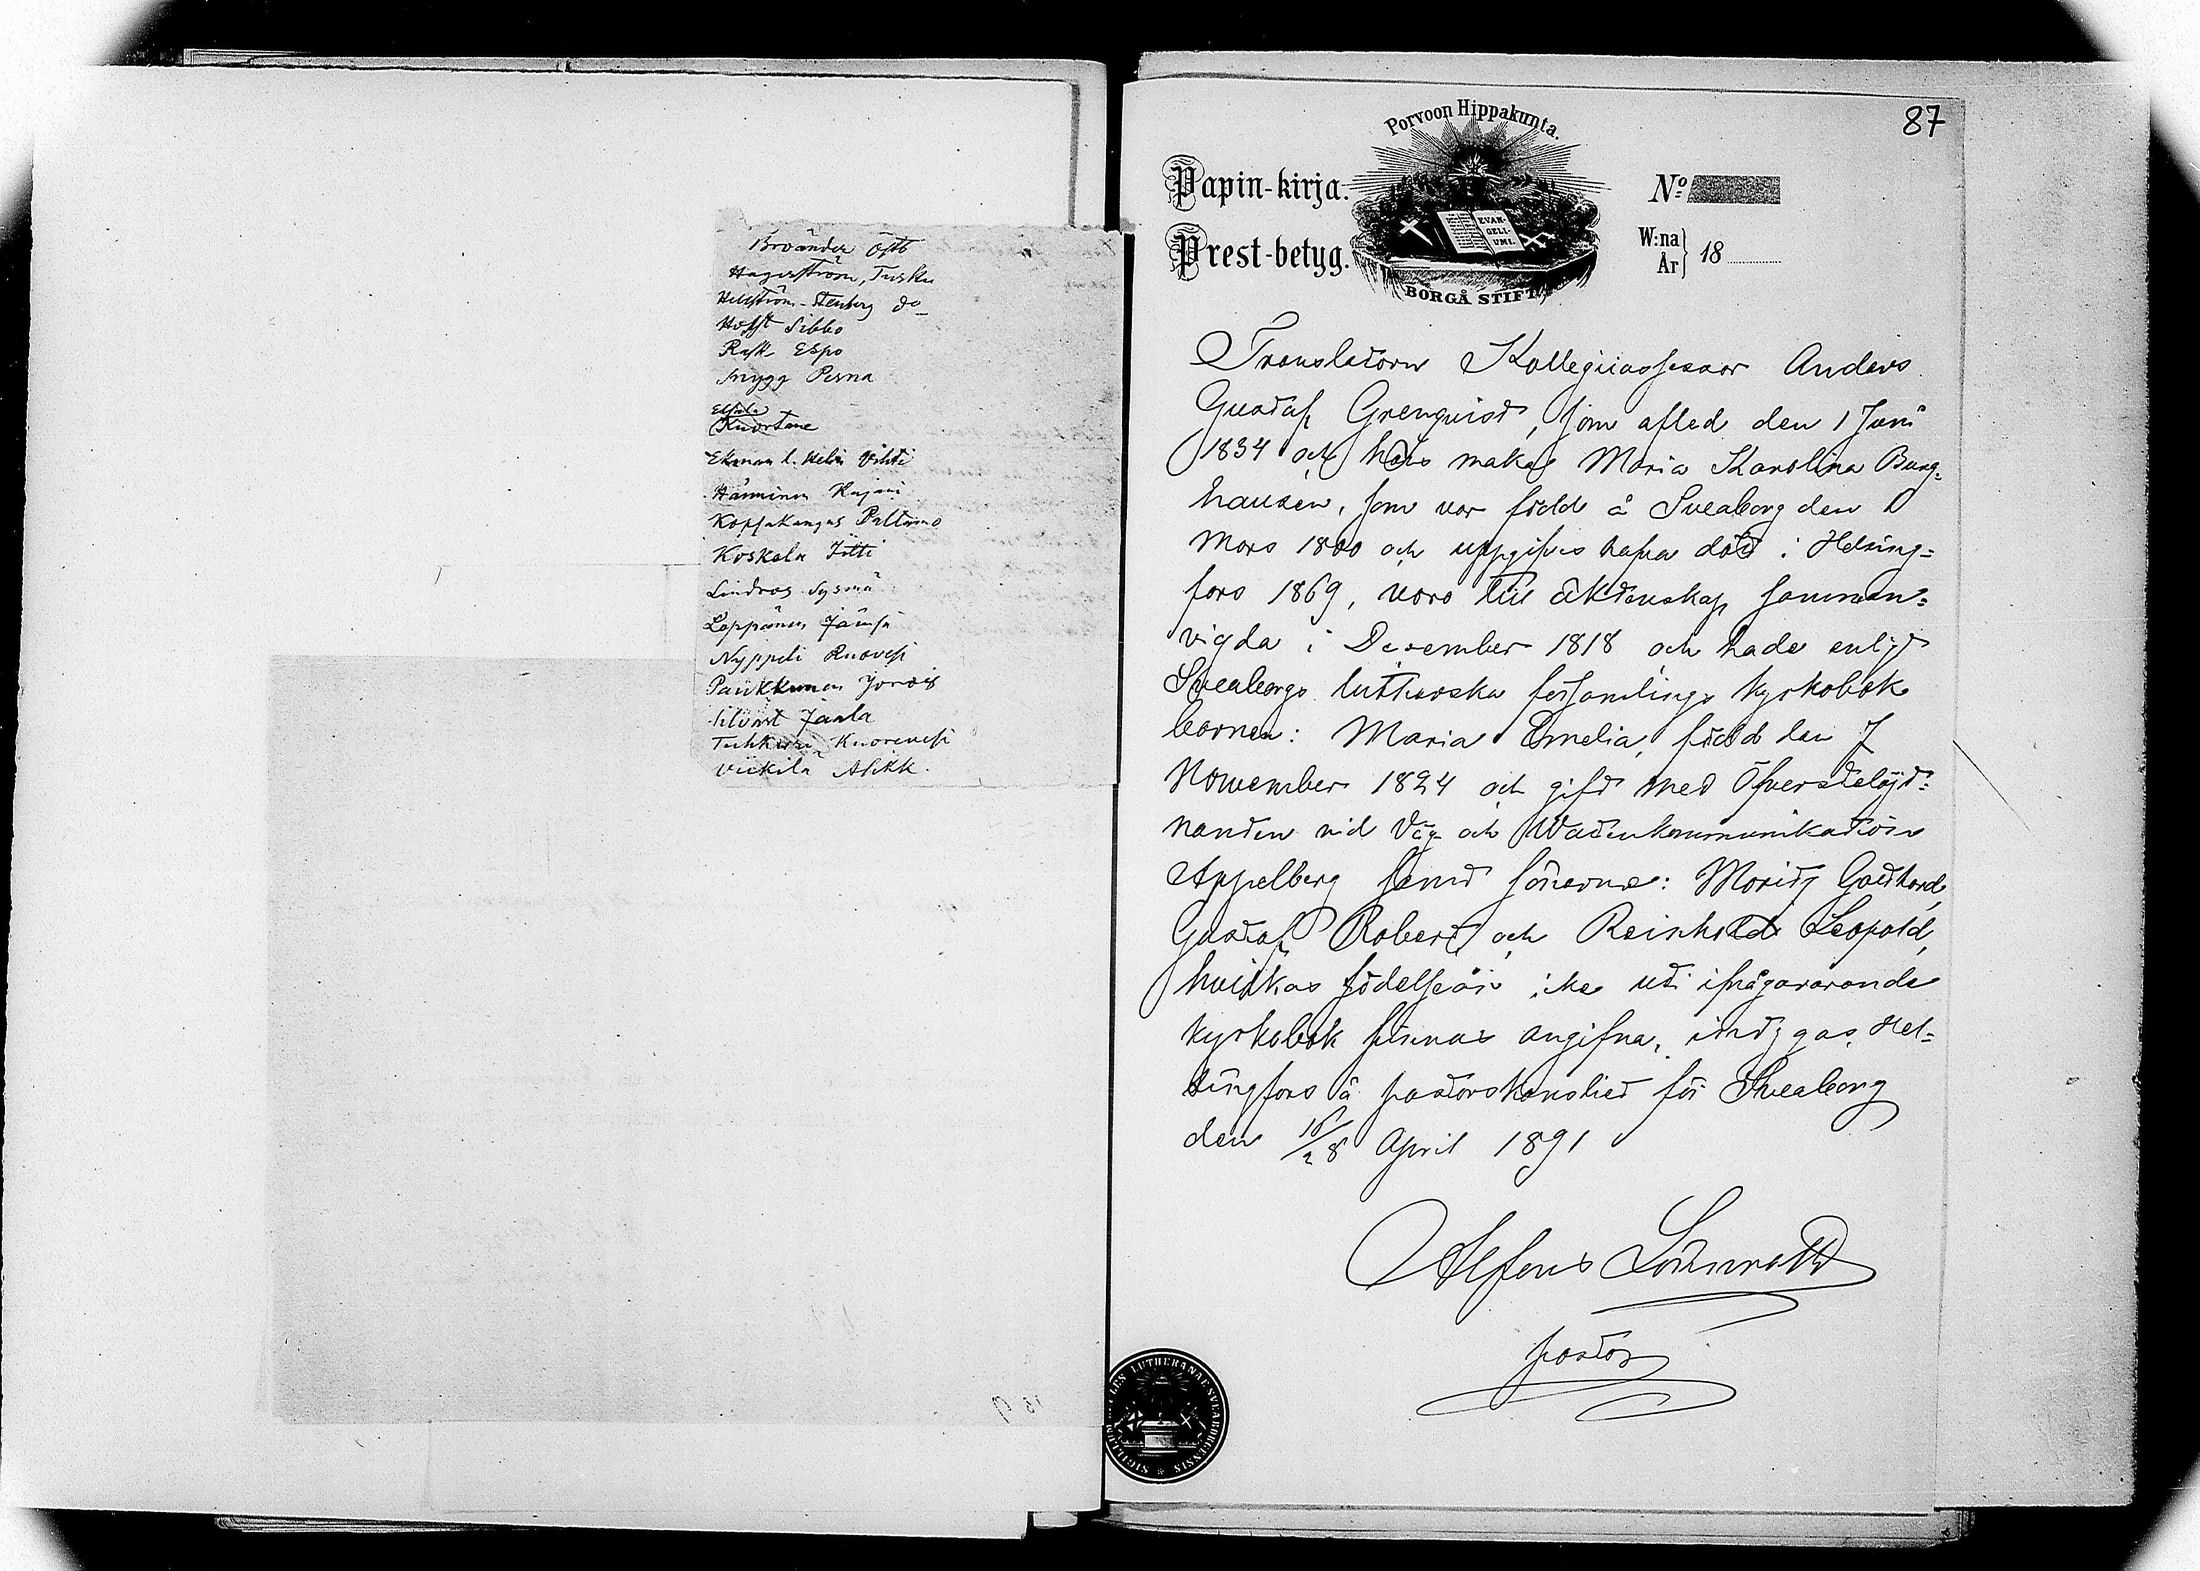 Brovander Östb
Hagerström, Turku
Hellström-Stenberg do
Hofft Sibbo
Rask Espo
Snygg Perna
Kuortane
Ekman l. Helin Vihti
Hänninen Kajani
Koppakangas Paltamo
Koskela Jitti
Lindros Sysmä
Loppänen Jämsä
Nyppeli Ruovesi
Paukkunen Jorois
Jaala
Tuhkuri Kuorevesi
Viikilä Asikk.
87
Porvoon Hippakunta.
Papin-kirja.
Prest-betyg.
EVAN-
GELI-
UMI.
BORGÅ STIFT
No
W:na
År } 18
Translatorn Kollegiiassessor Anders
Gustaf Grenquist, som afled den 1 Juni
1834 och hans maka Maria Karolina Burg-
hausen, som var född å Sveaborg den
Mars 1800 och uppgifves hafva dött i Helsing-
fors 1869, voro till äktenskap samman-
vigda i December 1818 och hade enligt
Sveaborgs lutherska församlings kyrkobok
barnen: Maria Emelia, född den 7
November 1824 och gift med Öfverstelöjt-
nanten vid Väg och Wattenkommunikation
Appelberg samt sönerne: Moritz Gotthard,
Gustaf Robert och Reinhold Leopold,
hvilkas födelseår icke uti ifrågavarande
kyrkobok finnas angifna, intygas. Hel-
singfors å pastorskansliet för Sveaborg
den 16/28 April 1891
Alfons Lönnroth
pastor
SIGILLUM LUTHERANAE SVEABORGENSIS